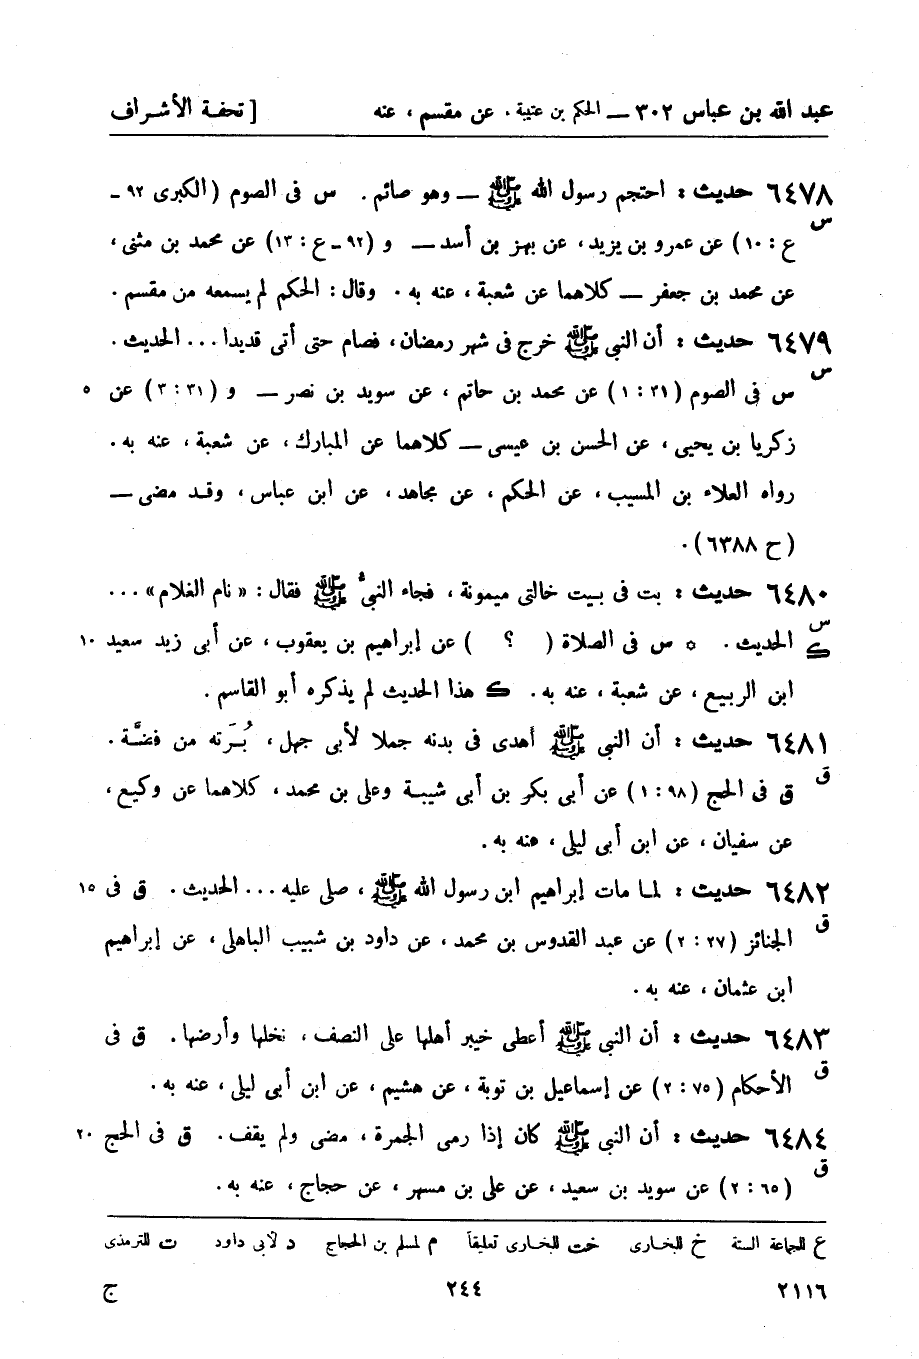 عبد الله بن عباس ٣٠٢ ــ الحكم بن عتيبة . عن مقسم ، عنه [ تحفة الأشراف
٦٤٧٨ حديث : احتجم رسول الله ﷺ ــ وهو صائم . س فى الصوم ( الكبرى ٩٢ ـ
س
ع : ١٠ ) عن عمرو بن يزيد ، عن بهز بن أسد ــ و ( ٩٢ ـ ع : ١٣ ) عن محمد بن مثنى ،
عن محمد بن جعفر ــ كلاهما عن شعبة ، عنه به . وقال : الحكم لم يسمعه من مقسم .
٦٤٧٩ حديث : أن النبى ﷺ خرج فى شهر رمضان ، فصام حتى أتى قديدا ... الحديث .
س
س فى الصوم ( ٣١ : ١ ) عن محمد بن حاتم ، عن سويد بن نصر ــ و ( ٣١ : ٣ ) عن ٥
زكريا بن يحيى ، عن الحسن بن عيسى ــ كلاهما عن المبارك ، عن شعبة ، عنه به .
رواه العلاء بن المسيب ، عن الحكم ، عن مجاهد ، عن ابن عباس ، وقد مضى ــ
( ح ٦٣٨٨ ) .
٦٤٨٠ حديث : بت فى بيت خالتى ميمونة ، فجاء النبىُّ ﷺ فقال : « نام الغلام » ...
س
ك الحديث . * س فى الصلاة ( ؟ ) عن إبراهيم بن يعقوب ، عن أبى زيد سعيد ١٠
ابن الربيع ، عن شعبة ، عنه به . ك هذا الحديث لم يذكره أبو القاسم .
٦٤٨١ حديث : أن النبى ﷺ أهدى فى بدنه جملا لأبى جهل ، بُرَته من فضَّة .
ق
ق فى الحج ( ٩٨ : ١ ) عن أبى بكر بن أبى شيبة وعلى بن محمد ، كلاهما عن وكيع ،
عن سفيان ، عن ابن أبى ليلى ، عنه به .
٦٤٨٢ حديث : لما مات إبراهيم ابن رسول الله ﷺ ، صلى عليه ... الحديث . ق فى ١٥
ق
الجنائز ( ٢٧ : ٢ ) عن عبد القدوس بن محمد ، عن داود بن شبيب الباهلى ، عن إبراهيم
ابن عثمان ، عنه به .
٦٤٨٣ حديث : أن النبى ﷺ أعطى خيبر أهلها على النصف ، نخلها وأرضها . ق فى
ق
الأحكام ( ٧٥ : ٢ ) عن إسماعيل بن توبة ، عن هشيم ، عن ابن أبى ليلى ، عنه به .
٦٤٨٤ حديث : أن النبى ﷺ كان إذا رمى الجمرة ، مضى ولم يقف . ق فى الحج ٢٠
ق
( ٦٥ : ٢ ) عن سويد بن سعيد ، عن على بن مسهر ، عن حجاج ، عنه به .
ع للجماعة الستة خ للبخارى خت للبخارى تعليقاً م لمسلم بن الحجاج د لأبى داود ت للترمذى
٢١١٦ ٢٤٤ ج